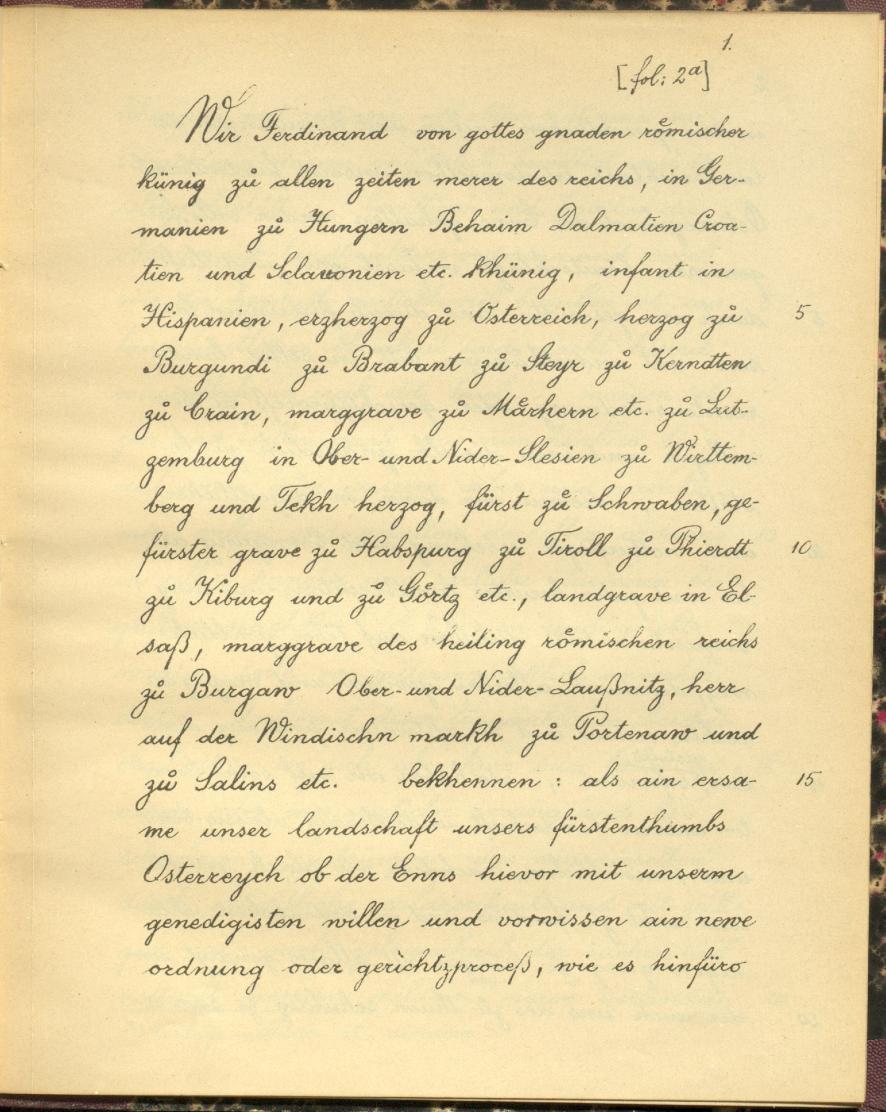 1.
[fol: 2a]
Wir Ferdinand von gottes gnaden römischer
künig zů allen zeiten merer des reichs, in Ger-
manien zů Hungern Behaim Dalmatien Croa-
tien und Sclavonien etc. khünig, infant in
Hispanien, erzherzog zů Österreich, herzog zů 5
Burgundi zů Brabant zů Steyr zů Kerndten
zů Crain, marggrave zů Mårhern etc. zů Lut-
zemburg in Ober- und Nider-Slesien zů Wirttem-
berg und Tekh herzog, fürst zů Schwaben, ge-
fürster grave zů Habspurg zů Tiroll zů Phierdt 10
zů Kiburg und zů Görtz etc., landgrave in El-
saß, marggrave des heiling römischen reichs
zů Burgaw Ober- und Nider-Laußnitz, herr
auf der Windischn markh zů Portenaw und
zů Salins etc. bekhennen: als ain ersa- 15
me unser landschaft unsers fürstenthumbs
Österreych ob der Enns hievor mit unserm
genedigisten willen und vorwissen ain newe
ordnung oder gerichtzproceß, wie es hinfüro